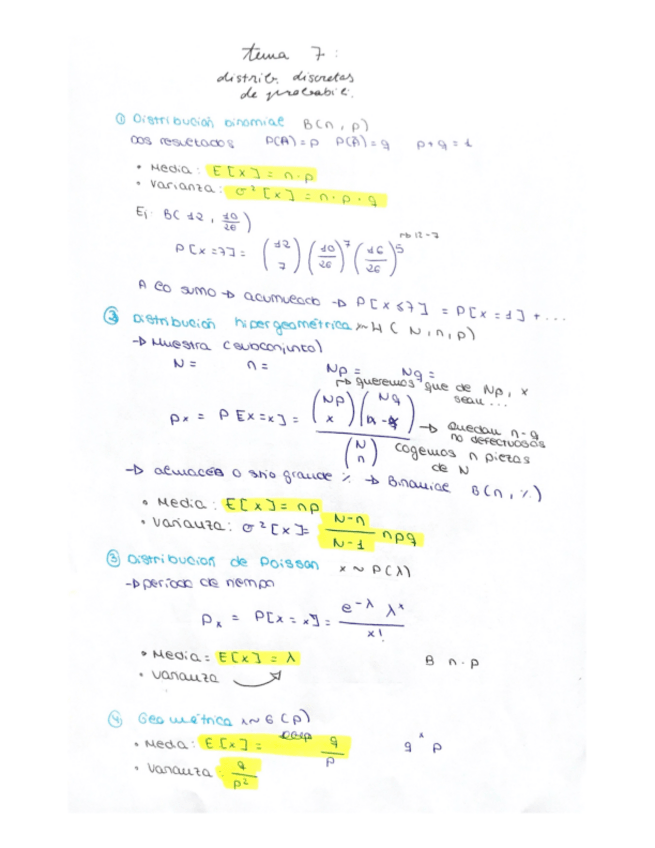 tema 7:
distrib. discretas
de probabili.
① Distribución binomial B(n, p)
dos resultados P(A) = p P(Ā) = q p+q = 1
• Media: E[x] = n·p
• Varianza: σ²[x] = n·p·q
Ej. B(12, 10/26)
P[x=7] = (12 7) (10/26)⁷ (16/26)⁵ → 12-7
A lo sumo → acumulado → P[x≤7] = P[x=1] + ...
② Distribución hipergeométrica x~H(N, n, p)
→ Muestra (subconjunto)
N = n = Np = Nq =
→ queremos que de Np, x
sean...
Px = P[x=x] = (Np x) (Nq n-x) / (N n)
→ quedan n-q
no defectuosas
cogemos n piezas
de N
→ almacén o sitio grande % → Binomial B(n, %)
• Media: E[x] = np
• Varianza: σ²[x] = N-n / N-1 npq
③ Distribución de Poisson x ~ P(λ)
→ período de tiempo
Px = P[x=x] = e^-λ λ^x / x!
• Media = E[x] = λ
• Varianza
B n·p
④ Geométrica x~G(p)
• Media: E[x] = q/p
q^x p
• Varianza: q/p²